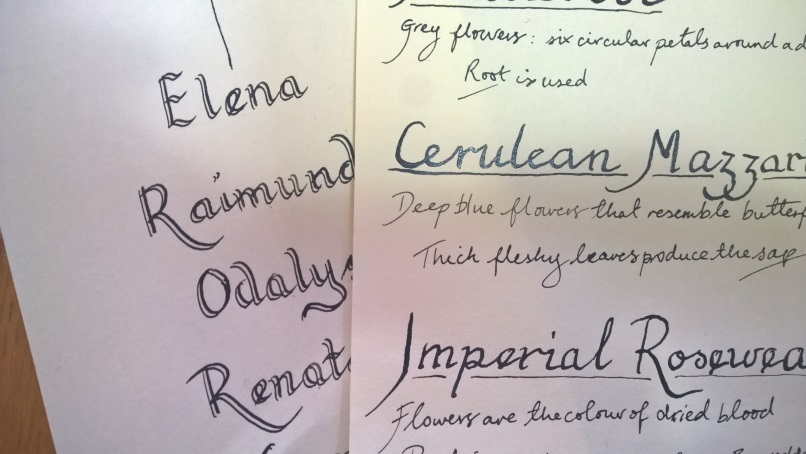 Elena
Raimund
Odalys
Renat
Grey flowers: six circular petals around a
Root is used
Cerulean Mazzar
Deep blue flowers that resemble butterf
Thick fleshy leaves produce the sap
Imperial Rosewea
Flowers are the colour of dried blood